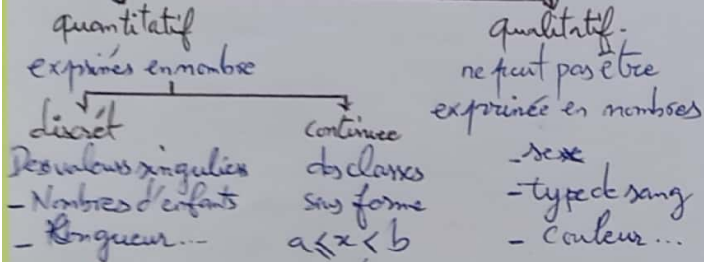 quantitatif
exprimés en nombre
discrét
Des valeurs singulies
- Nombres d'enfants
- longueur...
continuee
ds classes
sius forme
a ≤ x < b
qualitatif.
ne peut pas être
exprimée en nombres
- sexe
- type de sang
- Couleur...